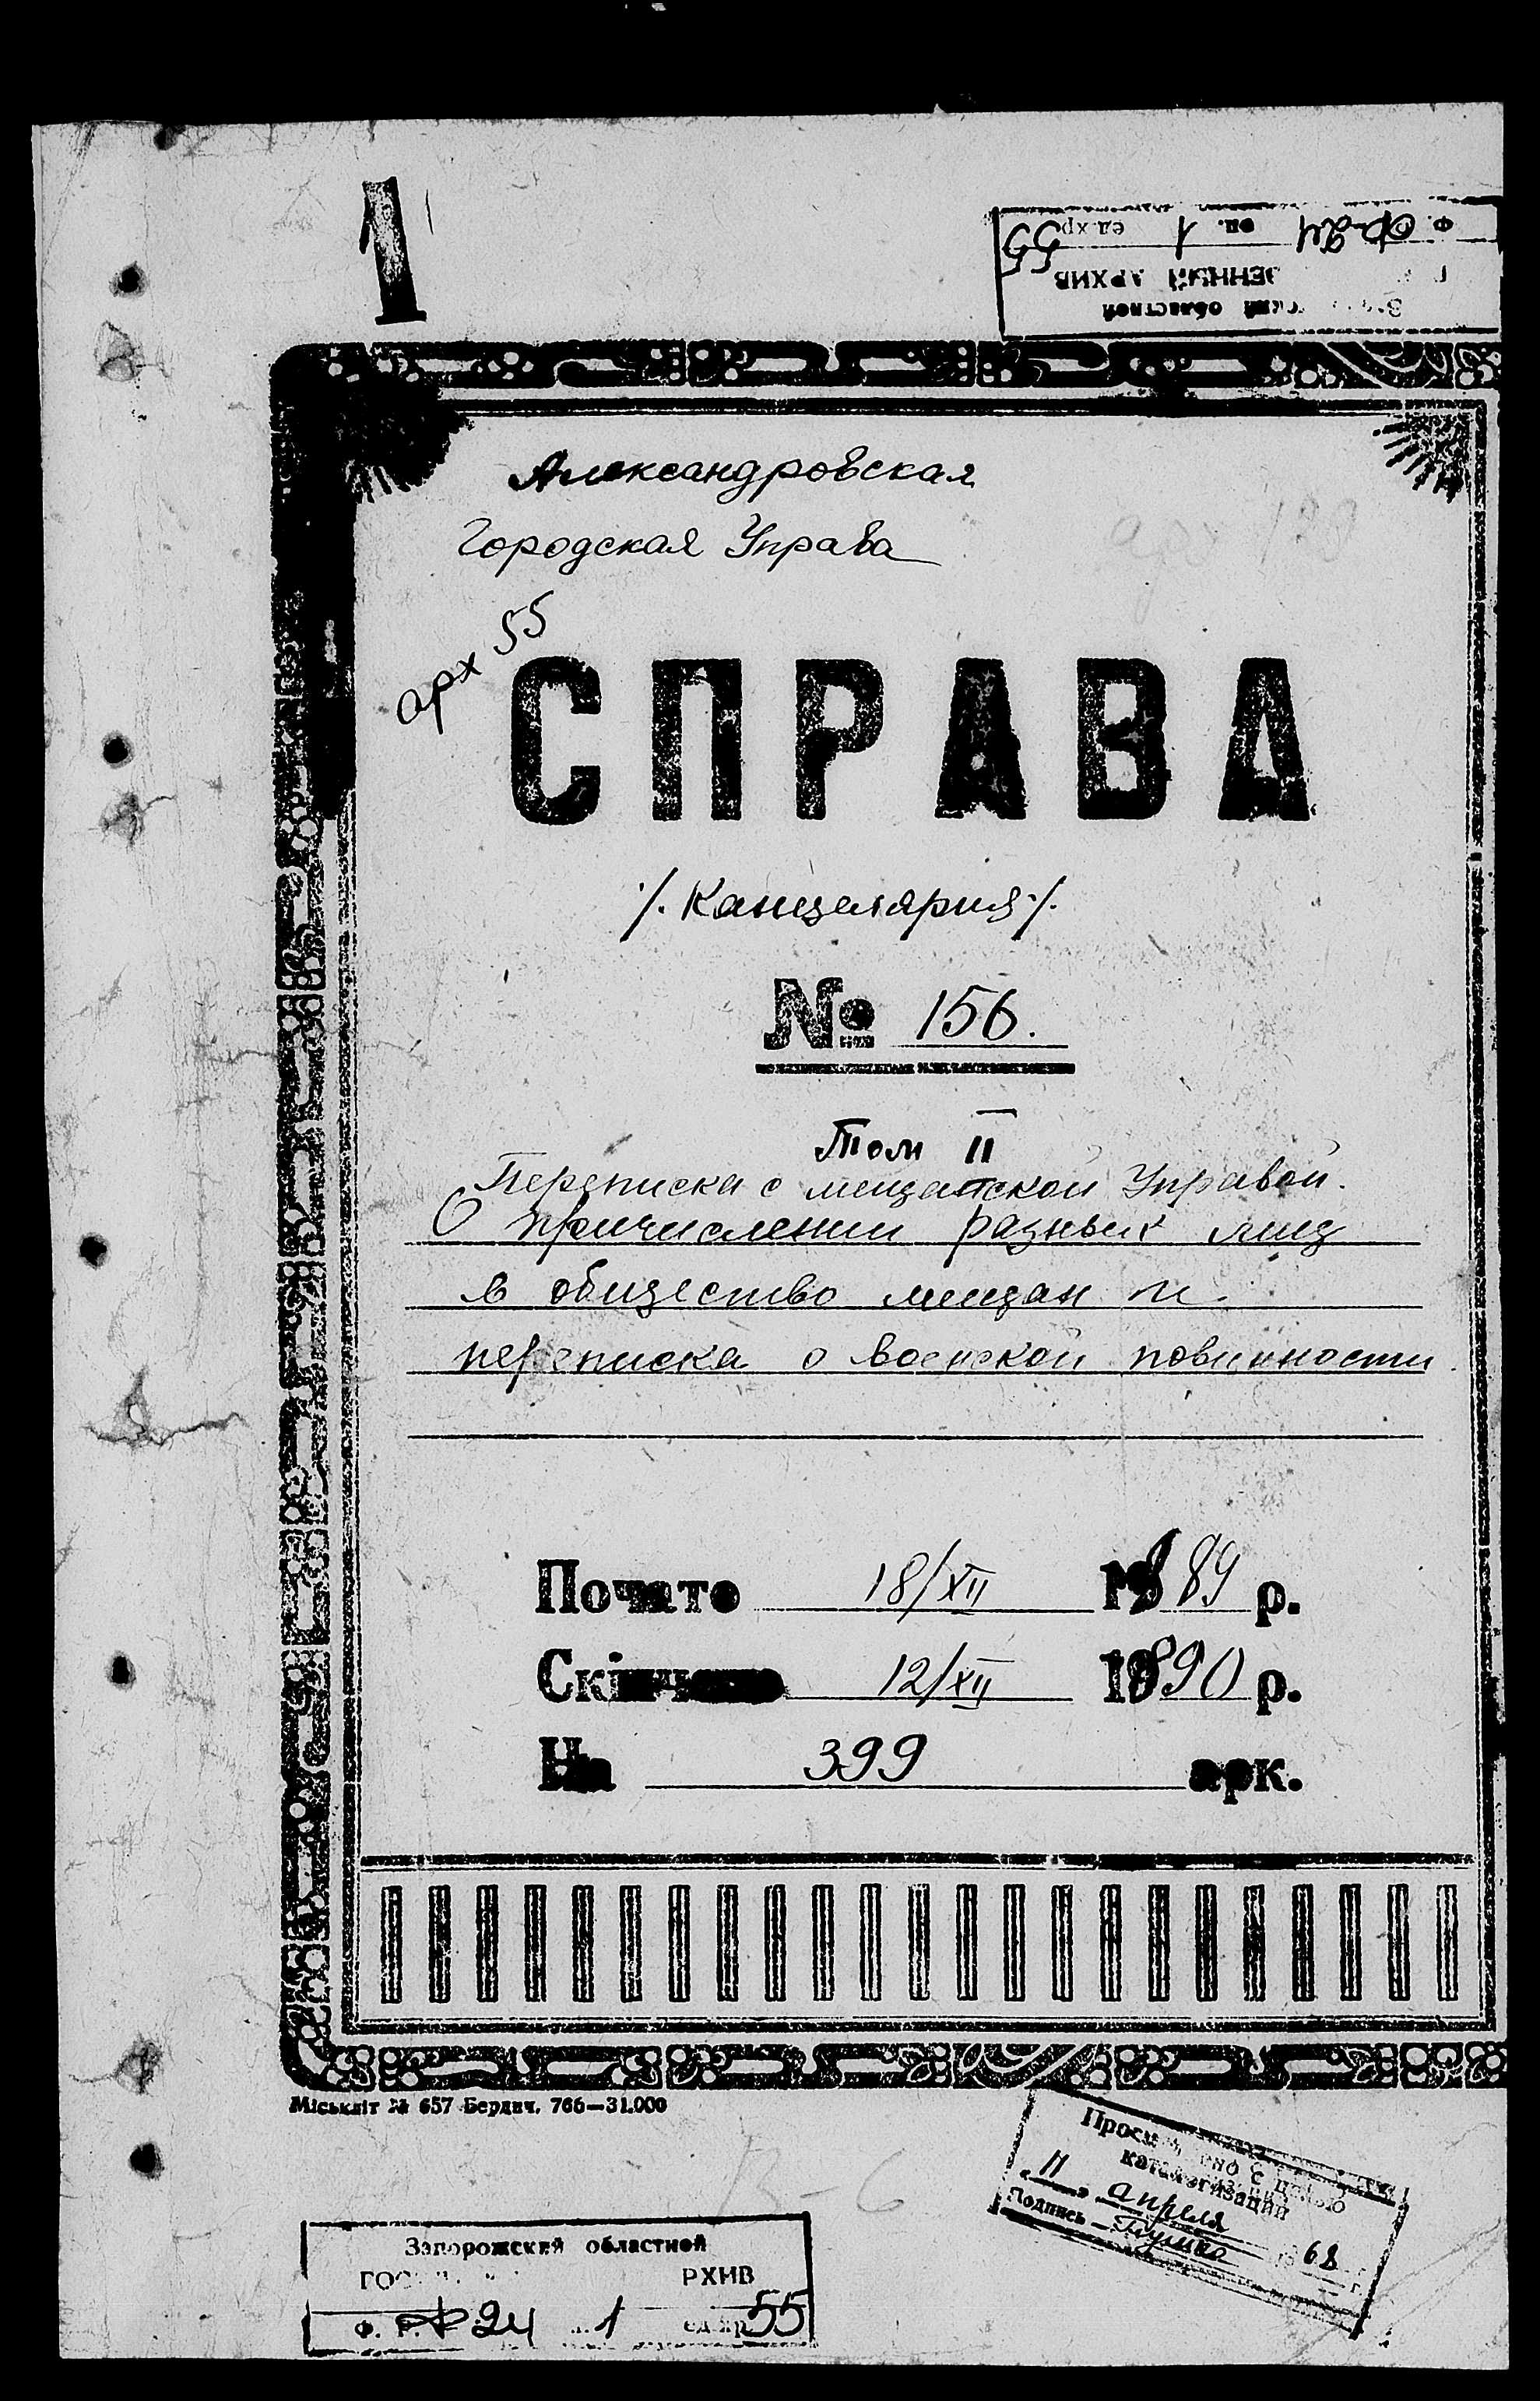 1
Ф. 24 оп. 1 ед.хр 55
АРХИВ
областной
Александровская
Городская Управа
арх 55
СПРАВА
/. Канцелярия /.
№ 156.
Том II
Переписка с мещанской Управой.
О причислении разных лиц
в общество мещан и
переписка о воинской повинности
Почато 18/XII 1889 р.
Скінчено 12/XII 1890 р.
На 399 арк.
Міськліт № 657 Бердич. 766—31.000
В-6
Просмотрено с целью
каталогизации
"11" апреля
1968 г.
Подпись
Запорожский областной
ГОС РХИВ
Ф. 24 1 ед.хр 55